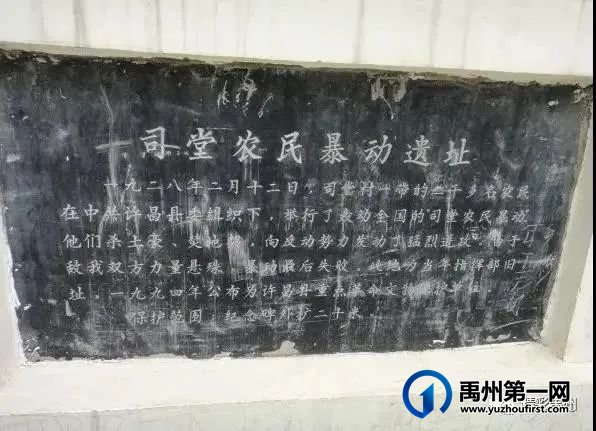 司堂农民暴动遗址
一九二八年二月十二日，司堂村一带的二千多名农民
在中共许昌县委组织下，举行了轰动全国的司堂农民暴动
他们杀土豪、焚地契，向反动势力发动了猛烈进攻，由于
敌我双方力量悬殊，暴动最后失败，此地为当年指挥部旧
址，一九九四年公布为许昌县重点革命文物保护单位
保护范围：纪念碑外扩二十米。
禹州第一网
www.yuzhoufirst.com